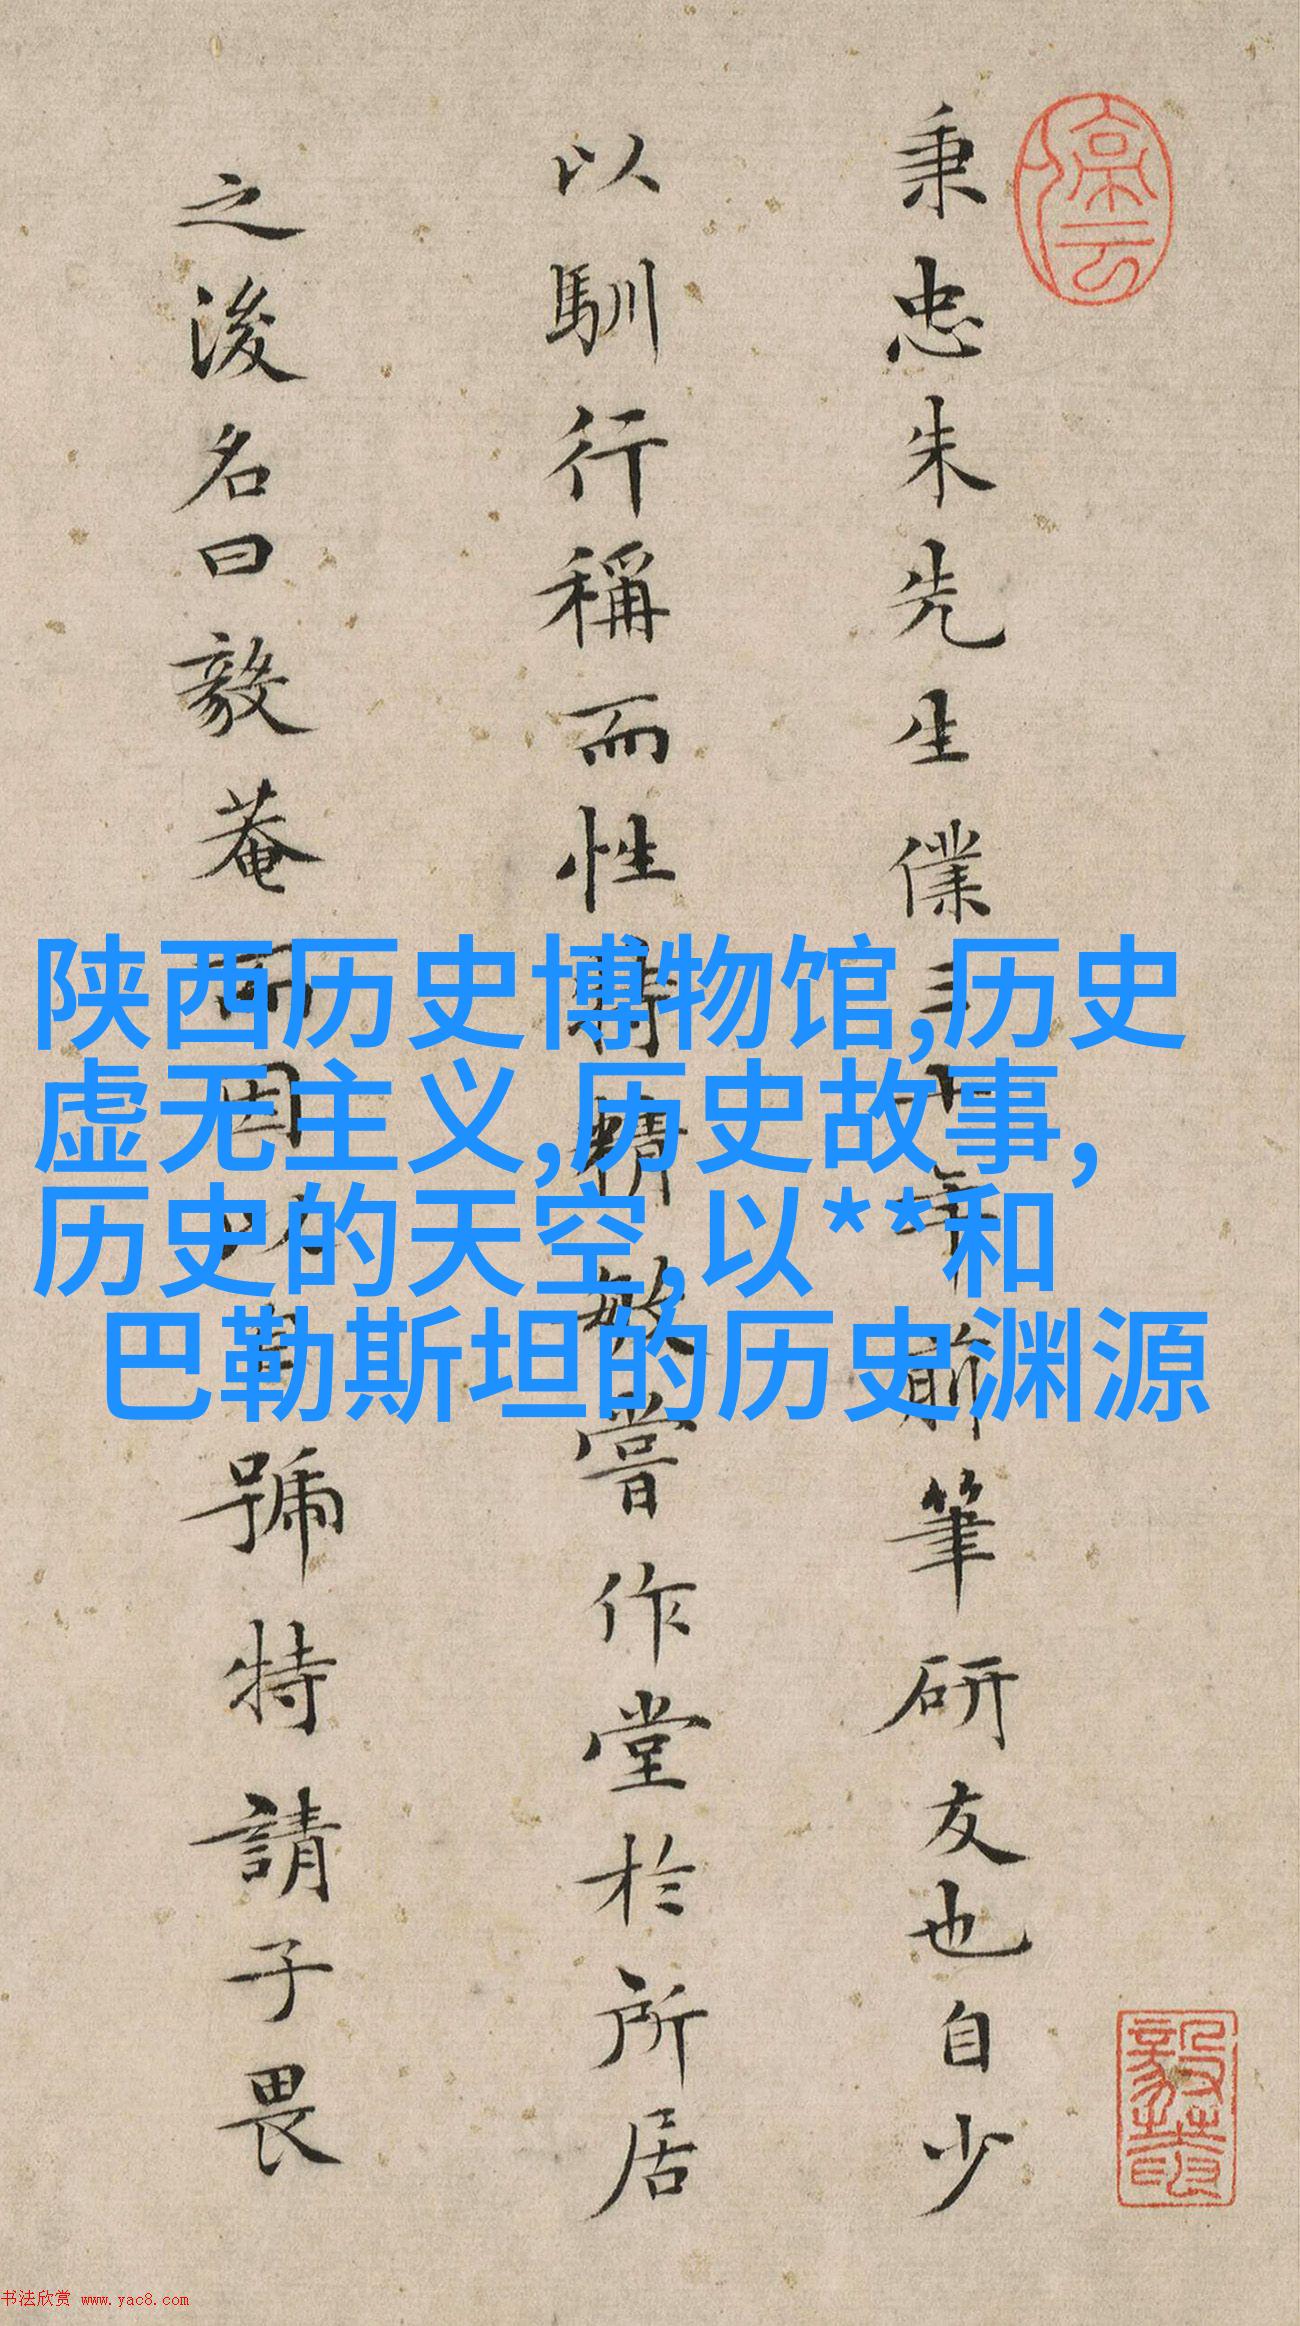 秉忠朱先生僕三十年前筆研友也自少
以馴行稱而性特精敏嘗作堂於所居
之後名曰毅菴而因以自號特請子畏
陕西历史博物馆,历史
虚无主义,历史故事,
历史的天空,以**和
巴勒斯坦的历史渊源
书法欣赏 www.yac8.com